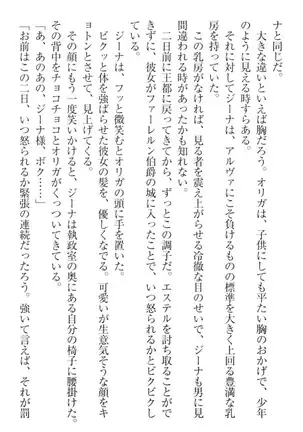 ナと同じだ。
大きな違いといえば胸だろう。オリガは、子供にしても平たい胸のおかげで、少年
のように見える時すらある。
それに対してジーナは、アルヴァにこそ負けるものの標準を大きく上回る豊満な乳
房を持っていた。
この乳房がなければ、見る者を震え上がらせる冷徹な目のせいで、ジーナも男に見
間違われる時があったかもしれない。
二日前に王都に戻ってきて、彼女がファーレルン伯爵の城に入ったことで、いつ怒られるかとビクビクし
きず、彼女がファーレルン伯爵の城に入ってから、ずっとこの調子だ。エステルを討ち取ることがで
ジーナは、フッと微笑むとオリガの頭に手を置いた。
ビクッと体を強ばらせた彼女の髪を、優しくなでる。可愛いが生意気そうな顔をキ
ョトンとさせて、見上げてくる。
その顔にもう一度笑いかけると、ジーナは執政室の奥にある自分の椅子に腰掛けた。
その背中をチョコチョコとオリガがくっついてきている。
「あ、あのあの、ジーナ様、ボク……」
「お前はこの二日、いつ怒られるか緊張の連続だったろう。強いて言えば、それが罰